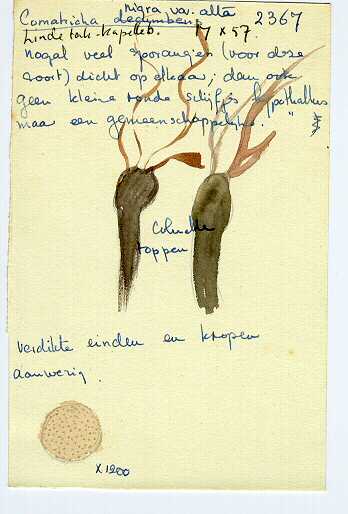 nigra var. alta
Comatricha decumbens 2367
Linde tak. Kapelleb. 17 x 57.
Nogal veel sporangiën (voor deze
soort) dicht op elkaar; dan ook
geen kleine ronde schijfjes hypothallus
maar een gemeenschappelijke. "
Columella
toppen
verdikte einden en knopen
aanwezig.
x 1200